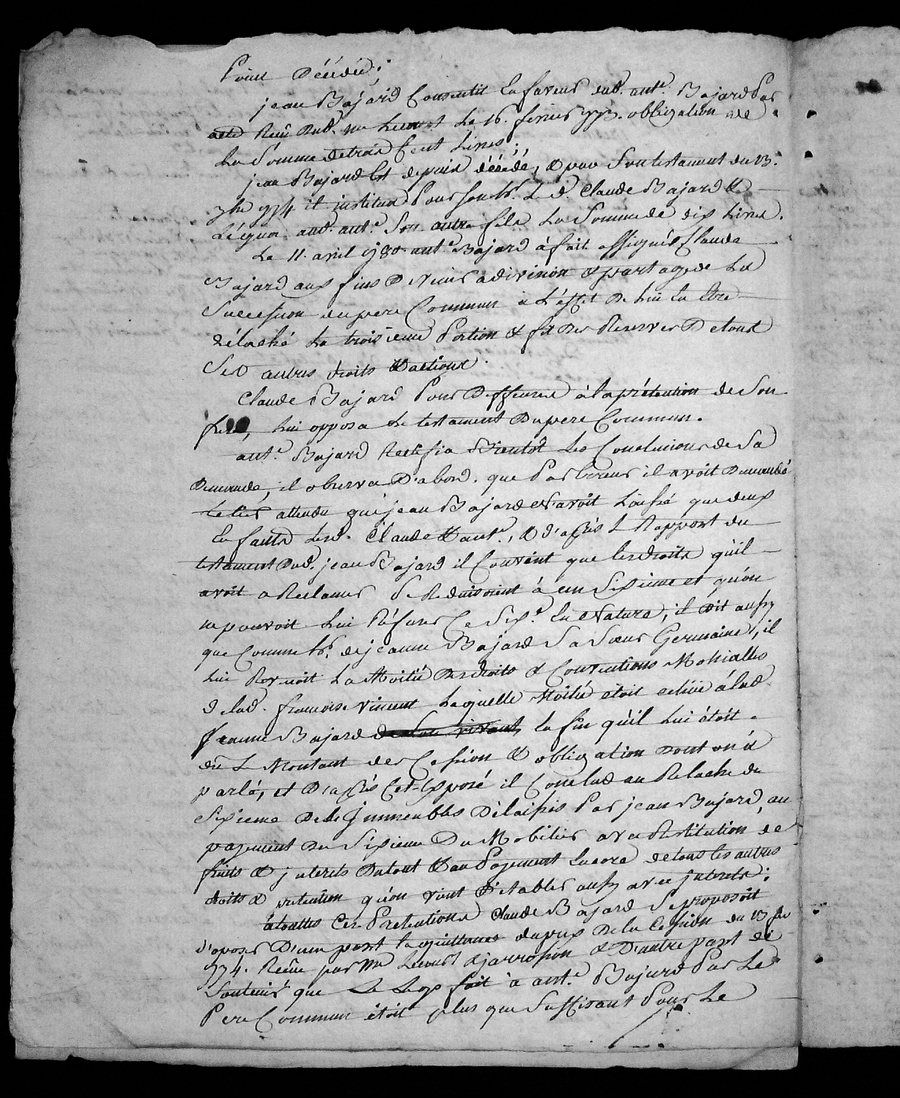 Point Décidé;
jean Bajard Consentit En faveur dud. antᵉ. Bajard Par
acte Reçu Dud. mᵉ le 16. février 1773. obligation de
La Somme de trois Cent Livres;
jean Bajard Est depuis décédé, & par Son testament du 13.
1774 il institua Pour Son hr. Le d. Claude Bajard &
Légua aud. antᵉ. Son autre fils La Somme de dix Livres.
Le 11. avril 1780 antᵉ. Bajard à fait assigner Claude
Bajard aux fins De venir à division & partage de La
Succession du pere Commun à L'effet De Lui En être
délaché La troisieme Portion & fit Des Reserves De tous
Ses autres droits & actions.
Claude Bajard Pour Deffenses à la prétention de Son
frere, Lui opposa Le testament Du pere Commun.
antᵉ. Bajard Rectifia Bientôt Les Conclusions de Sa
Demande, il observa D'abord que Par Erreur il avoit Demandé
Le tier attendu que jean Bajard N'avoit Laissé que deux
Enfants Led. Claude & antᵉ., & d'après Le Rapport du
testament Dud. jean Bajard il Convint que les droits qu'il
avoit a Reclamer Se Reduisoient à un Sixieme et qu'on
ne pouvoit Lui Réfuser Ce Sixᵉ. En Nature, il Dit aussy
que Comme hr. de jeanne Bajard Sa Sœur Germaine, il
Lui Revenoit La Moitié Des droits & Conventions Matrimoniales
De lad. françoise vincent Laquelle Moitié étoit échüe à lad.
jeanne Bajard Enfin qu'il Lui étoit
dû Le Montant des Cession & obligation Dont on a
parlé, et D'après Cet Exposé il Conclud au Relache du
Sixieme Des Immeubles Délaissés Par jean Bajard, au
payement Du Sixieme Du Mobilier avec Restitution de
fruits & jnterets Du tout & au Payement Encore de tous les autres
droits & pretention qu'on vient D'établir aussy avec jnterets:
à toutes Ces Pretentions Claude Bajard Se proposoit
D'oposer D'une part la quittance du prix De la Cession du 13
1774. Reçüe par mᵉ & D'autre part de
Soutenir que Le Legs fait à antᵉ. Bajard Par Le
Pere Commun étoit plus que Suffisant Pour Le